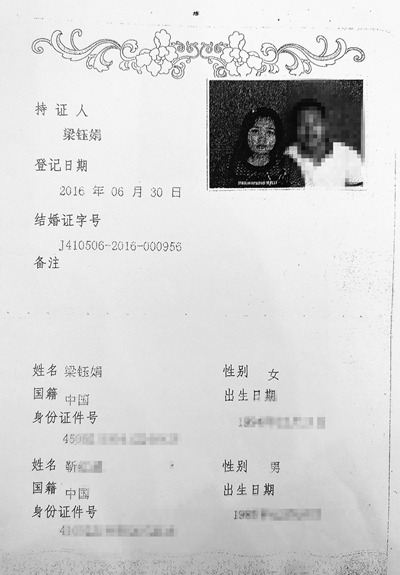 持证人
梁钰娟
登记日期
2016 年 06 月 30 日
结婚证字号
J410506-2016-000956
备注
姓名 梁钰娟 性别 女
国籍 中国 出生日期
身份证件号
姓名 靳 性别 男
国籍 中国 出生日期
身份证件号